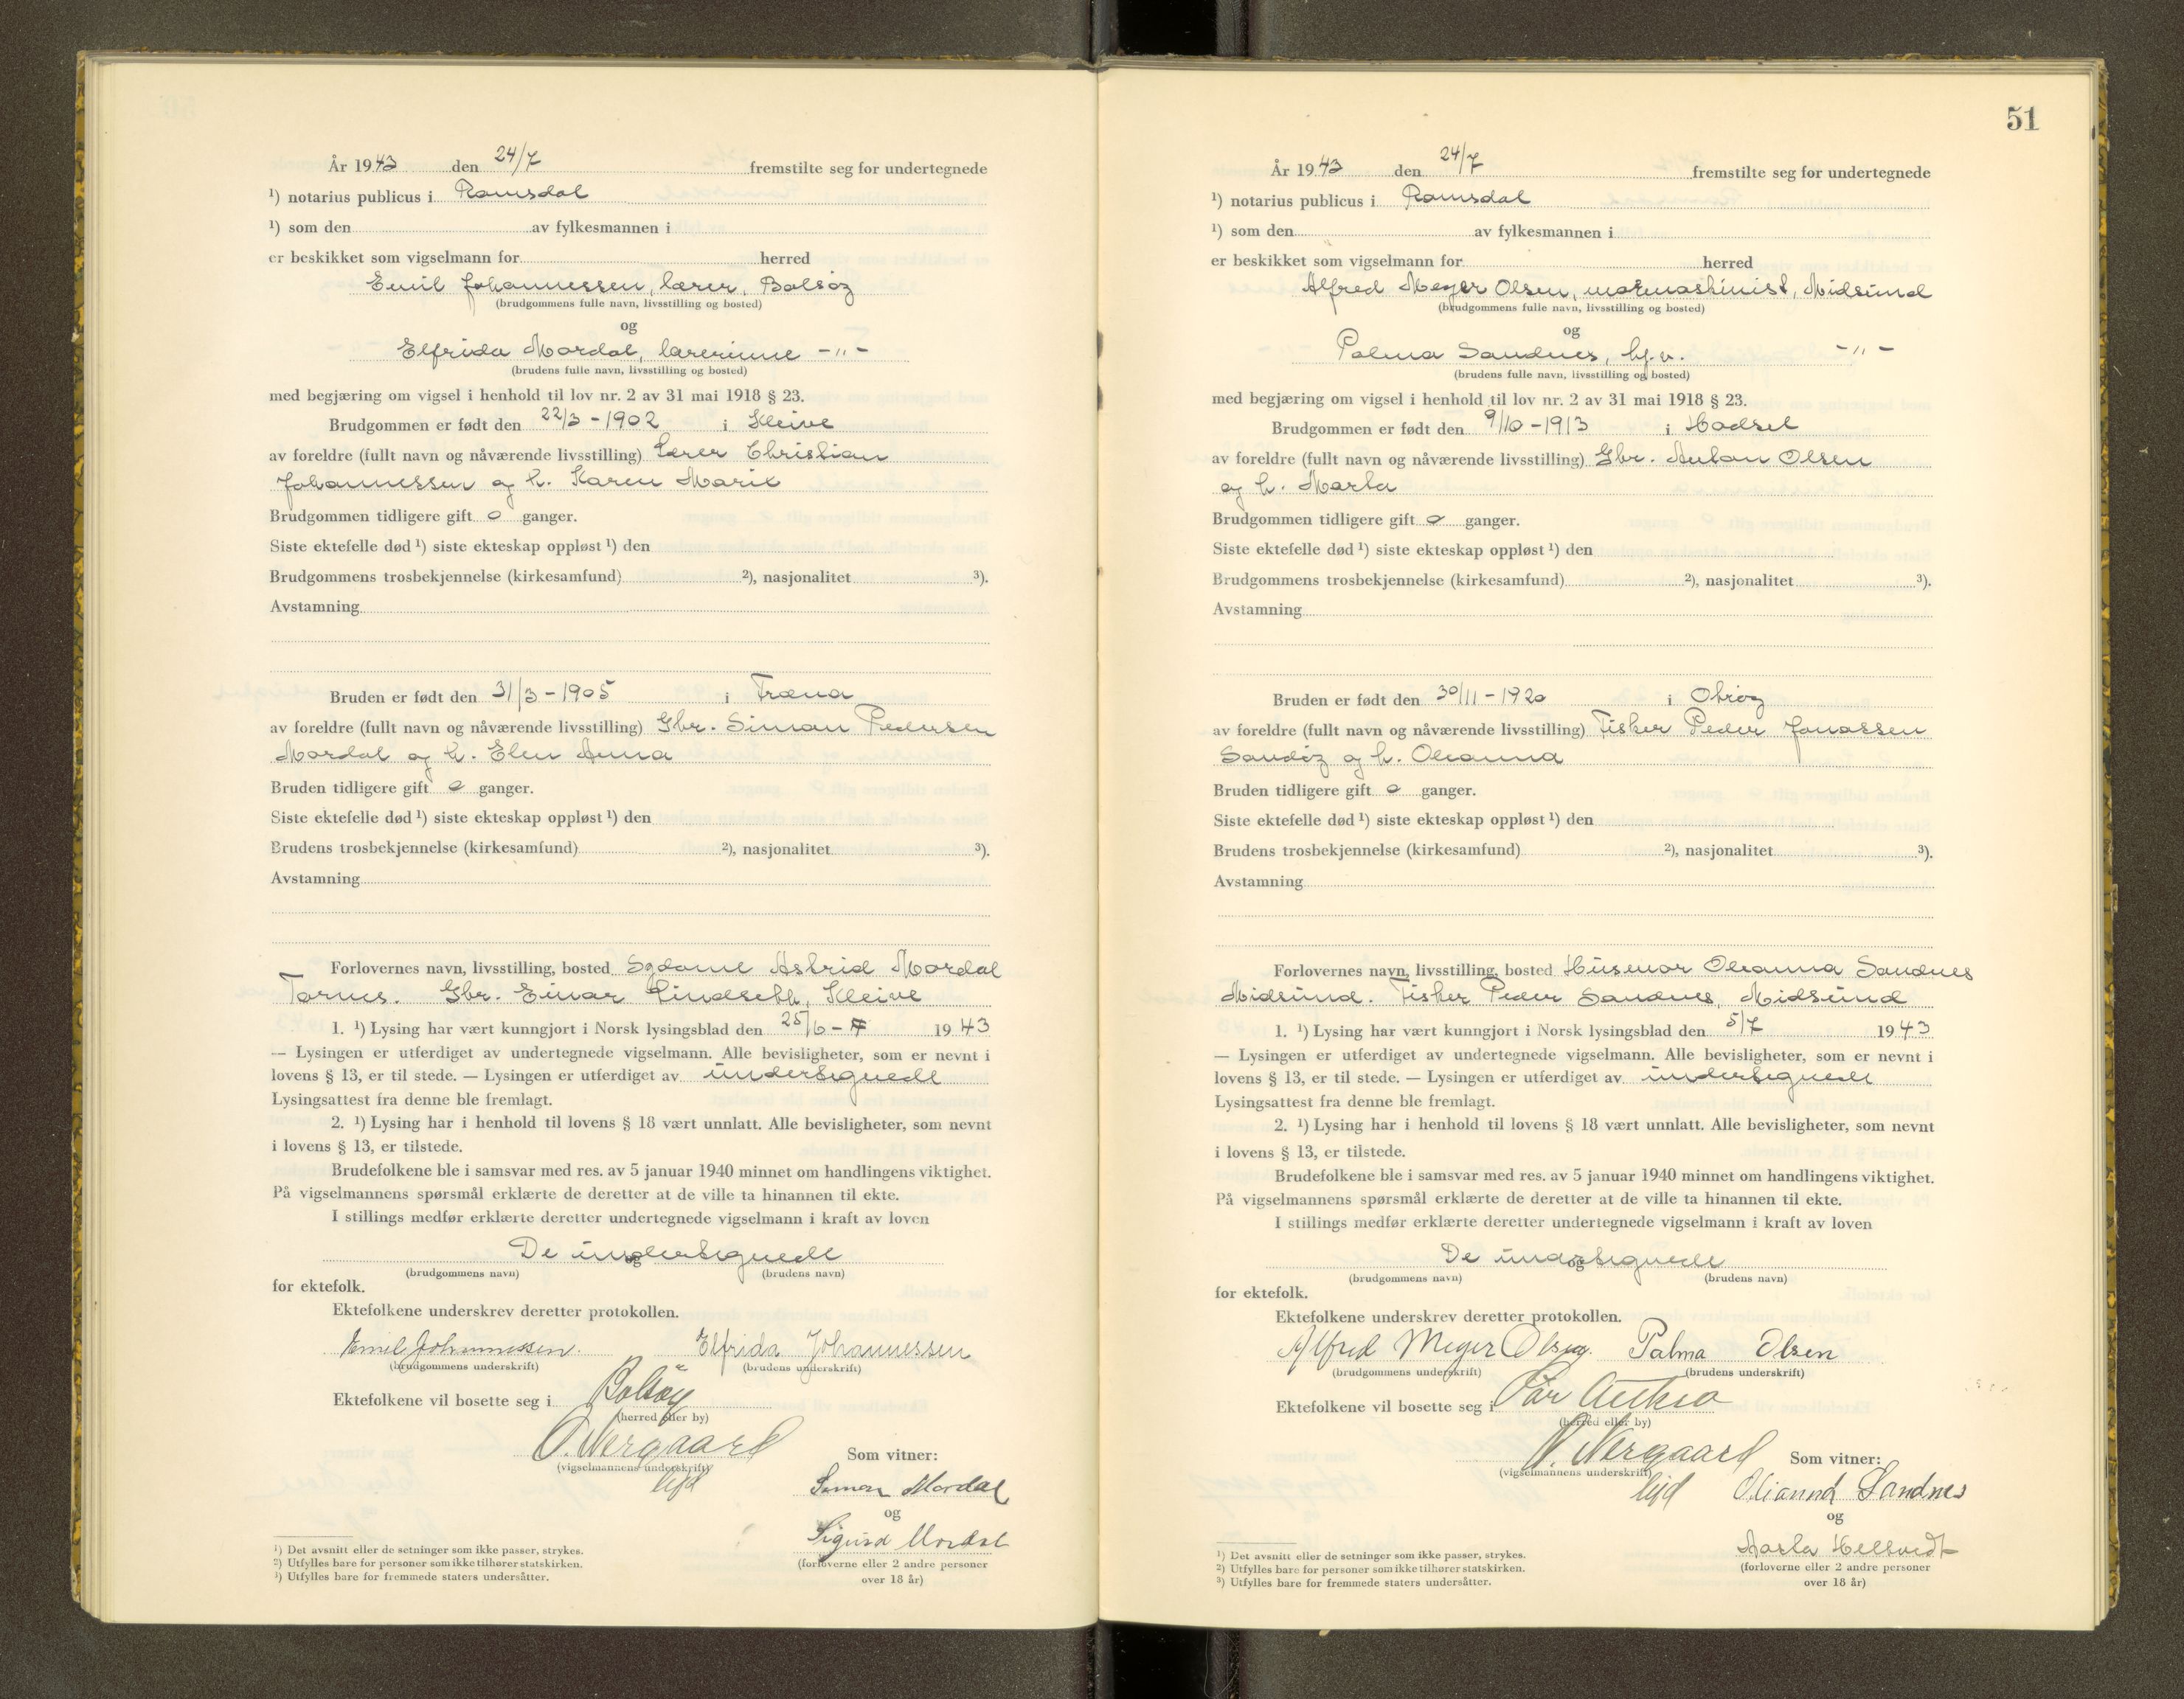 År 1943 den 24/7 fremstilte seg for undertegnede
¹) notarius publicus i Romsdal
¹) som den av fylkesmannen i
er beskikket som vigselmann for herred
Emil Johannessen, lærer, Bolsöy
(brudgommens fulle navn, livsstilling og bosted)
og
Elfrida Mordal, lærerinne -"-
(brudens fulle navn, livsstilling og bosted)
med begjæring om vigsel i henhold til lov nr. 2 av 31 mai 1918 § 23.
Brudgommen er født den 22/3 - 1902 i Kleive
av foreldre (fullt navn og nåværende livsstilling) Lærer Christian
Johannessen og h. Karen Marie
Brudgommen tidligere gift 0 ganger.
Siste ektefelle død ¹) siste ekteskap oppløst ¹) den
Brudgommens trosbekjennelse (kirkesamfund) ²), nasjonalitet ³).
Avstamning
Bruden er født den 31/3 - 1905 i Træna
av foreldre (fullt navn og nåværende livsstilling) Gbr. Simon Pedersen
Mordal og h. Elen Anna
Bruden tidligere gift 0 ganger.
Siste ektefelle død ¹) siste ekteskap oppløst ¹) den
Brudens trosbekjennelse (kirkesamfund) ²), nasjonalitet ³).
Avstamning
Forlovernes navn, livsstilling, bosted Sydame Astrid Mordal
Tornes. Gbr. Einar Lindseth, Kleive
1. ¹) Lysing har vært kunngjort i Norsk lysingsblad den 25/6 - 1943
— Lysingen er utferdiget av undertegnede vigselmann. Alle bevisligheter, som er nevnt i
lovens § 13, er til stede. — Lysingen er utferdiget av undertegnede
Lysingsattest fra denne ble fremlagt.
2. ¹) Lysing har i henhold til lovens § 18 vært unnlatt. Alle bevisligheter, som nevnt
i lovens § 13, er tilstede.
Brudefolkene ble i samsvar med res. av 5 januar 1940 minnet om handlingens viktighet.
På vigselmannens spørsmål erklærte de deretter at de ville ta hinannen til ekte.
I stillings medfør erklærte deretter undertegnede vigselmann i kraft av loven
De undertegnede
og
(brudgommens navn) (brudens navn)
for ektefolk.
Ektefolkene underskrev deretter protokollen.
Emil Johannessen. Elfrida Johannessen
(brudgommens underskrift) (brudens underskrift)
Ektefolkene vil bosette seg i Bolsöy
(herred eller by)
O. Nergaard
(vigselmannens underskrift)
Som vitner:
Simon Mordal
og
Sigurd Mordal
(forloverne eller 2 andre personer
over 18 år)
¹) Det avsnitt eller de setninger som ikke passer, strykes.
²) Utfylles bare for personer som ikke tilhører statskirken.
³) Utfylles bare for fremmede staters undersåtter.
51
År 1943 den 24/7 fremstilte seg for undertegnede
¹) notarius publicus i Romsdal
¹) som den av fylkesmannen i
er beskikket som vigselmann for herred
Alfred Meyer Olsen, motmaskinist, Midsund
(brudgommens fulle navn, livsstilling og bosted)
og
Palma Sandnes, hj.v. -"-
(brudens fulle navn, livsstilling og bosted)
med begjæring om vigsel i henhold til lov nr. 2 av 31 mai 1918 § 23.
Brudgommen er født den 9/10 - 1913 i Hadsel
av foreldre (fullt navn og nåværende livsstilling) Gbr. Anton Olsen
og h. Marta
Brudgommen tidligere gift 0 ganger.
Siste ektefelle død ¹) siste ekteskap oppløst ¹) den
Brudgommens trosbekjennelse (kirkesamfund) ²), nasjonalitet ³).
Avstamning
Bruden er født den 30/11 - 1920 i Otröy
av foreldre (fullt navn og nåværende livsstilling) Fisker Peder Jonassen
Sandöy og h. Oleanna
Bruden tidligere gift 0 ganger.
Siste ektefelle død ¹) siste ekteskap oppløst ¹) den
Brudens trosbekjennelse (kirkesamfund) ²), nasjonalitet ³).
Avstamning
Forlovernes navn, livsstilling, bosted Husmor Oleanna Sandnes
Midsund. Fisker Peder Sandnes, Midsund
1. ¹) Lysing har vært kunngjort i Norsk lysingsblad den 5/7 1943
— Lysingen er utferdiget av undertegnede vigselmann. Alle bevisligheter, som er nevnt i
lovens § 13, er til stede. — Lysingen er utferdiget av undertegnede
Lysingsattest fra denne ble fremlagt.
2. ¹) Lysing har i henhold til lovens § 18 vært unnlatt. Alle bevisligheter, som nevnt
i lovens § 13, er tilstede.
Brudefolkene ble i samsvar med res. av 5 januar 1940 minnet om handlingens viktighet.
På vigselmannens spørsmål erklærte de deretter at de ville ta hinannen til ekte.
I stillings medfør erklærte deretter undertegnede vigselmann i kraft av loven
De undertegnede
og
(brudgommens navn) (brudens navn)
for ektefolk.
Ektefolkene underskrev deretter protokollen.
Alfred Meyer Olsen. Palma Olsen
(brudgommens underskrift) (brudens underskrift)
Ektefolkene vil bosette seg i
(herred eller by)
O. Nergaard
(vigselmannens underskrift)
Som vitner:
Olianna Sandnes
og
Marta Hellvedt
(forloverne eller 2 andre personer
over 18 år)
¹) Det avsnitt eller de setninger som ikke passer, strykes.
²) Utfylles bare for personer som ikke tilhører statskirken.
³) Utfylles bare for fremmede staters undersåtter.